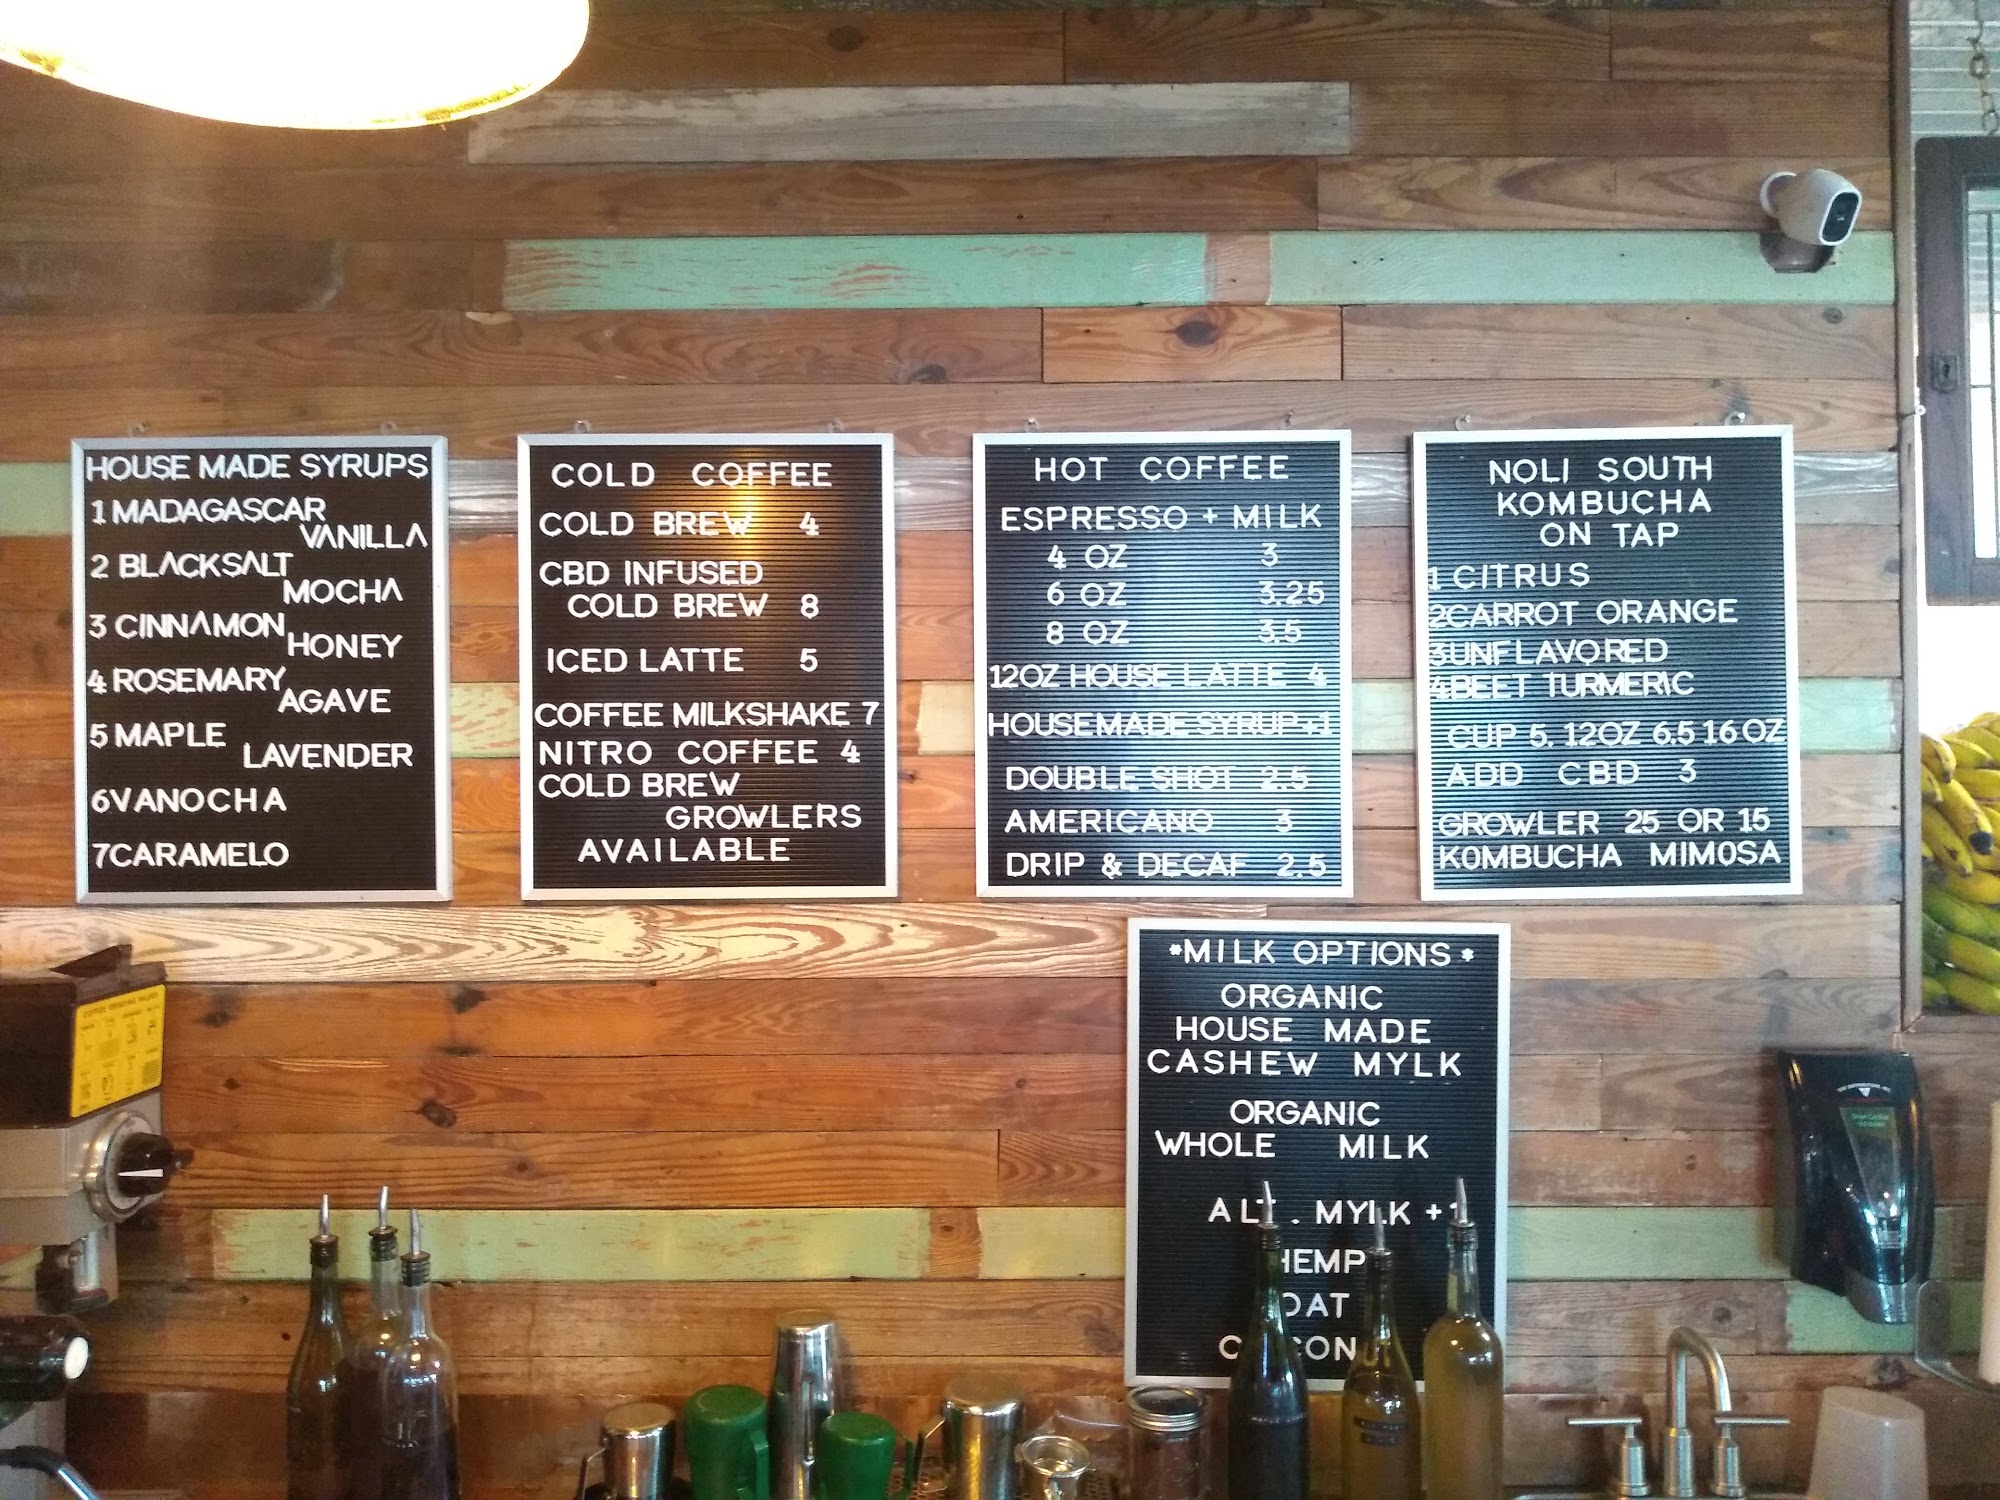 HOUSE MADE SYRUPS
1 MADAGASCAR
VANILLA
2 BLACKSALT
MOCHA
3 CINNAMON
HONEY
4 ROSEMARY
AGAVE
5 MAPLE
LAVENDER
6 VANOCHA
7 CARAMELO
COLD COFFEE
COLD BREW 4
CBD INFUSED
COLD BREW 8
ICED LATTE 5
COFFEE MILKSHAKE 7
NITRO COFFEE 4
COLD BREW
GROWLERS
AVAILABLE
HOT COFFEE
ESPRESSO + MILK
4 OZ 3
6 OZ 3.25
8 OZ 3.5
12OZ HOUSE LATTE 4
HOUSEMADE SYRUP +1
DOUBLE SHOT 2.5
AMERICANO 3
DRIP & DECAF 2.5
NOLI SOUTH
KOMBUCHA
ON TAP
1 CITRUS
2 CARROT ORANGE
3 UNFLAVORED
4 BEET TURMERIC
CUP 5. 12OZ 6.5 16 OZ
ADD CBD 3
GROWLER 25 OR 15
KOMBUCHA MIMOSA
*MILK OPTIONS*
ORGANIC
HOUSE MADE
CASHEW MYLK
ORGANIC
WHOLE MILK
ALT. MYLK +1
HEMP
OAT